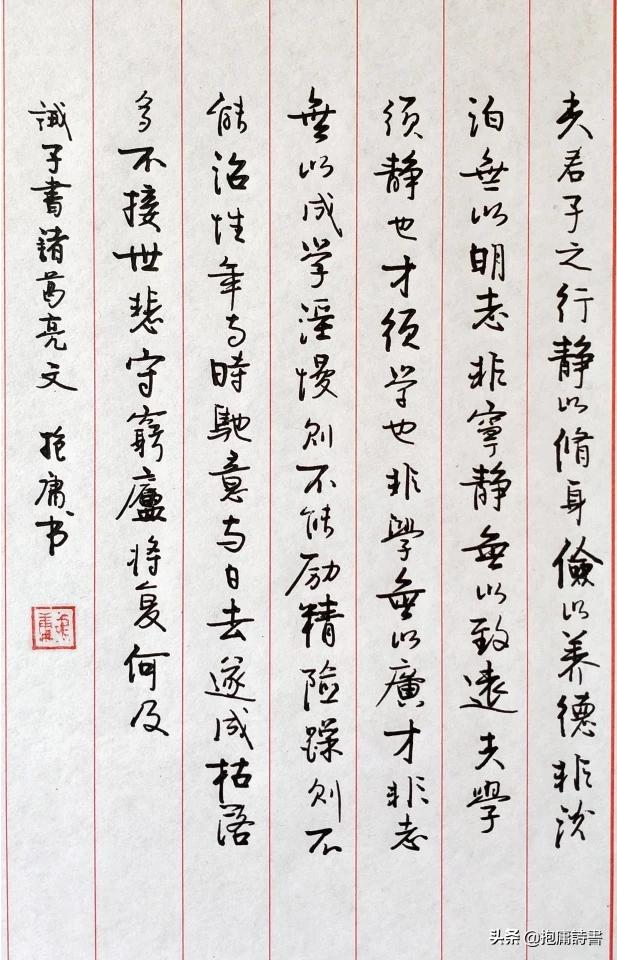 夫君子之行静以脩身儉以养德非淡
泊無以明志非寧静無以致遠夫學
须静也才须学也非學無以廣才非志
無以成学淫慢则不能励精險躁则不
能治性年与時馳意与日去遂成枯落
多不接世悲守窮廬将复何及
诫子書諸葛亮文 抱庸书
抱庸
头条 @抱庸詩書